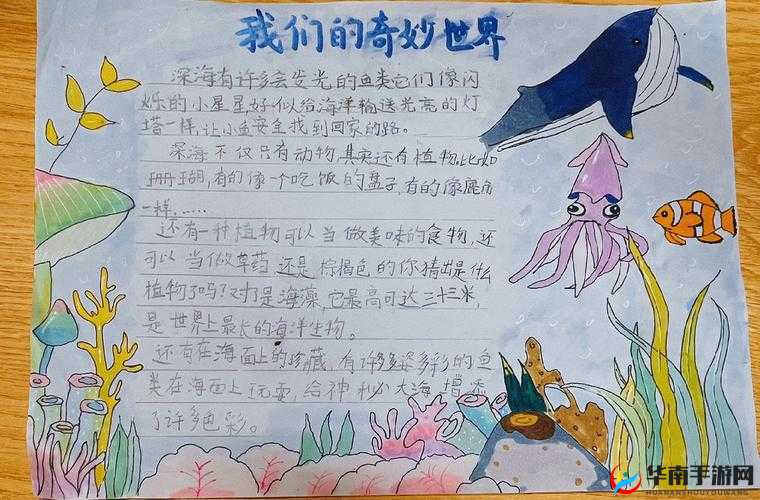 我们的奇妙世界
深海有许多会发光的鱼类它们像闪
烁的小星星,好似给海洋输送光亮的灯
塔一样,让小鱼安全找到回家的路。
深海不仅只有动物,其实还有植物,比如
珊瑚,有的像一个吃饭的盘子,有的像鹿角
一样……
还有一种植物可以当做美味的食物,还
可以当做草药还是棕褐色的你猜出是什么
植物了吗?对了是海藻,它最高可达三十三米,
是世界上最长的海洋生物。
还有在海面上的珍藏,有许多多姿多彩的鱼
类在海面上玩耍,给神秘大海增添
了许多色彩。
华南手游网
HUANANSHOUYOUWANG